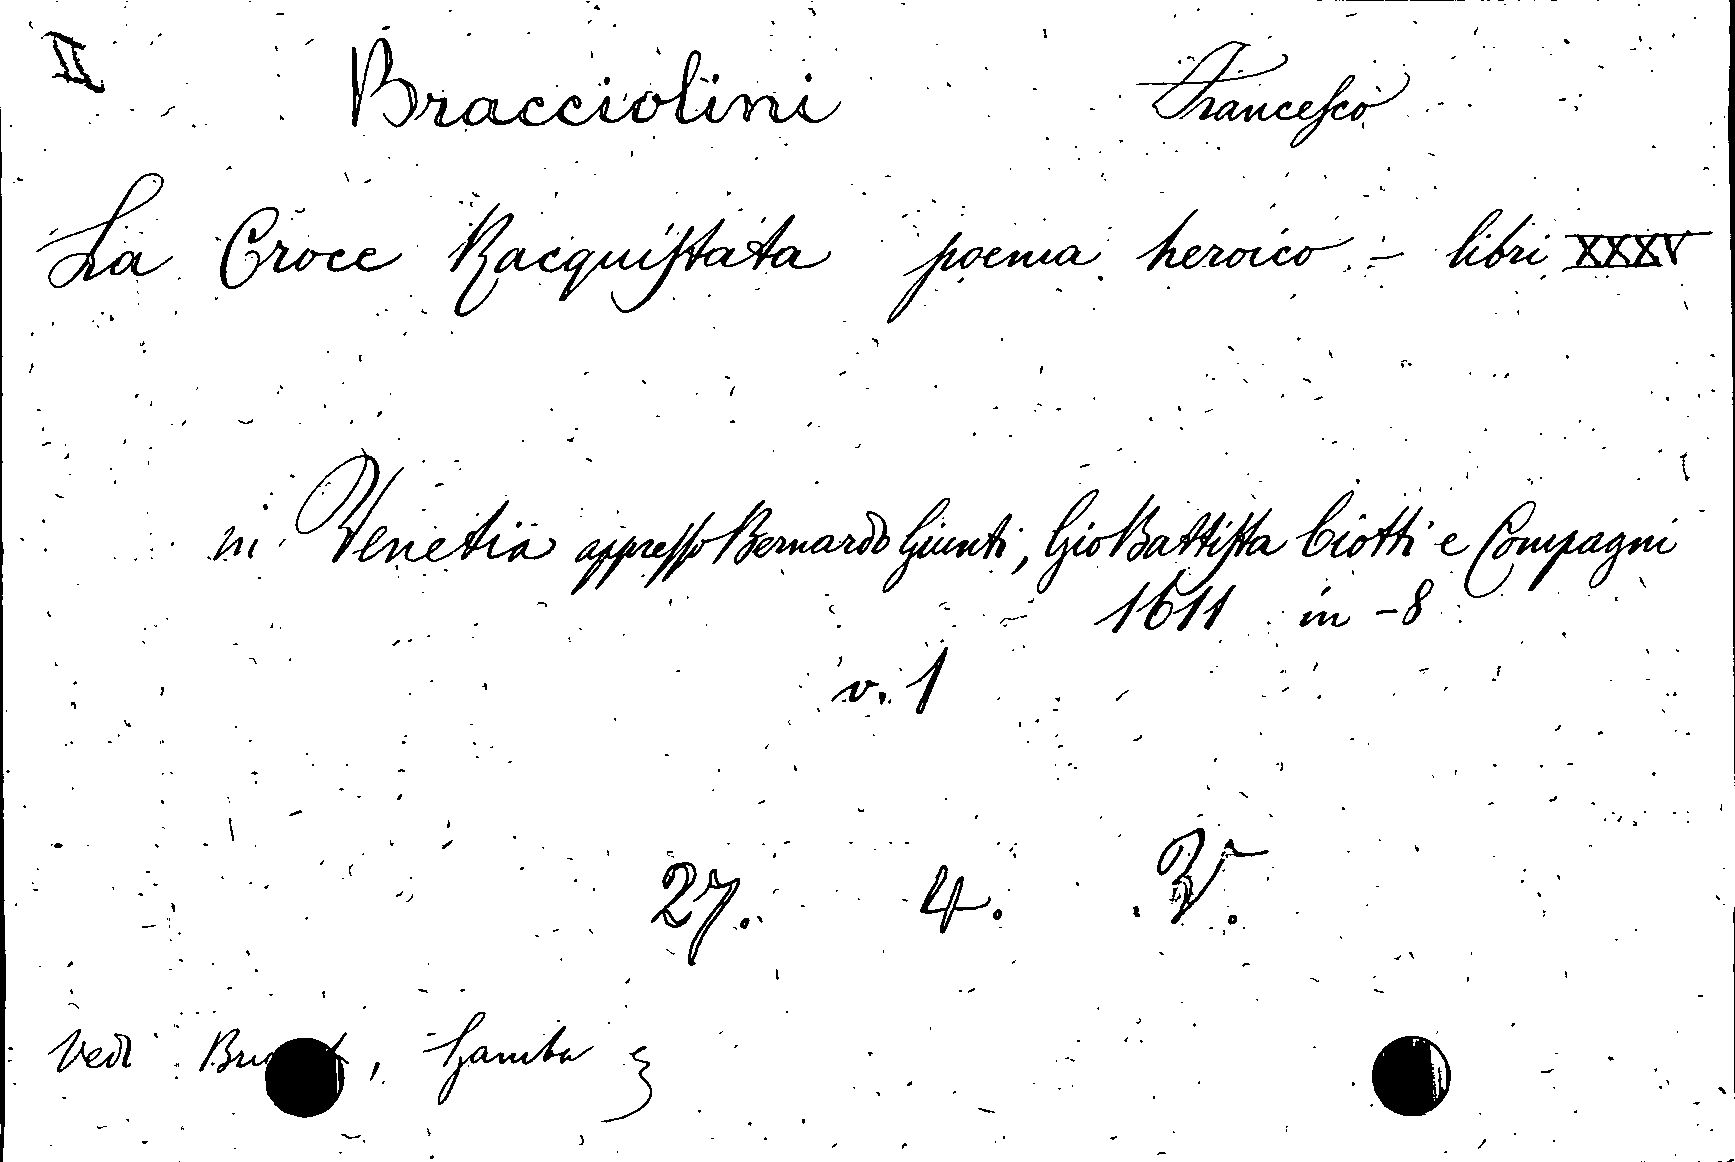 II Bracciolini Francesco
La Croce Racquistata poema heroico - libri XXXV
in Venetia appresso Bernardo Giunti, Gio Battista Ciotti e Compagni
1611 in -8
v. 1
27. 4. V.
Vedi , Gamba